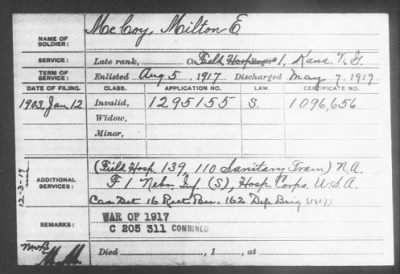 NAME OF SOLDIER: McCoy, Milton E
SERVICE: Late rank, Co. Field Hosp #1, Kans. N. G.
TERM OF SERVICE: Enlisted Aug 5, 1917 Discharged May 7, 1919
DATE OF FILING. CLASS. APPLICATION NO. LAW. CERTIFICATE NO.
1903, Jan 12 Invalid, 1295155 S. 1096,656
Widow,
Minor,
ADDITIONAL SERVICES: (Field Hosp 139, 110 Sanitary Train) N.A.
F 1 Nebr. Inf (S), Hosp Corps U.S.A.
Cas Det 16 Rect Bn. 162 Dep Brig (1917)
12-3-17
REMARKS: WAR OF 1917
C 205 311 COMBINED
Died , 1 , at